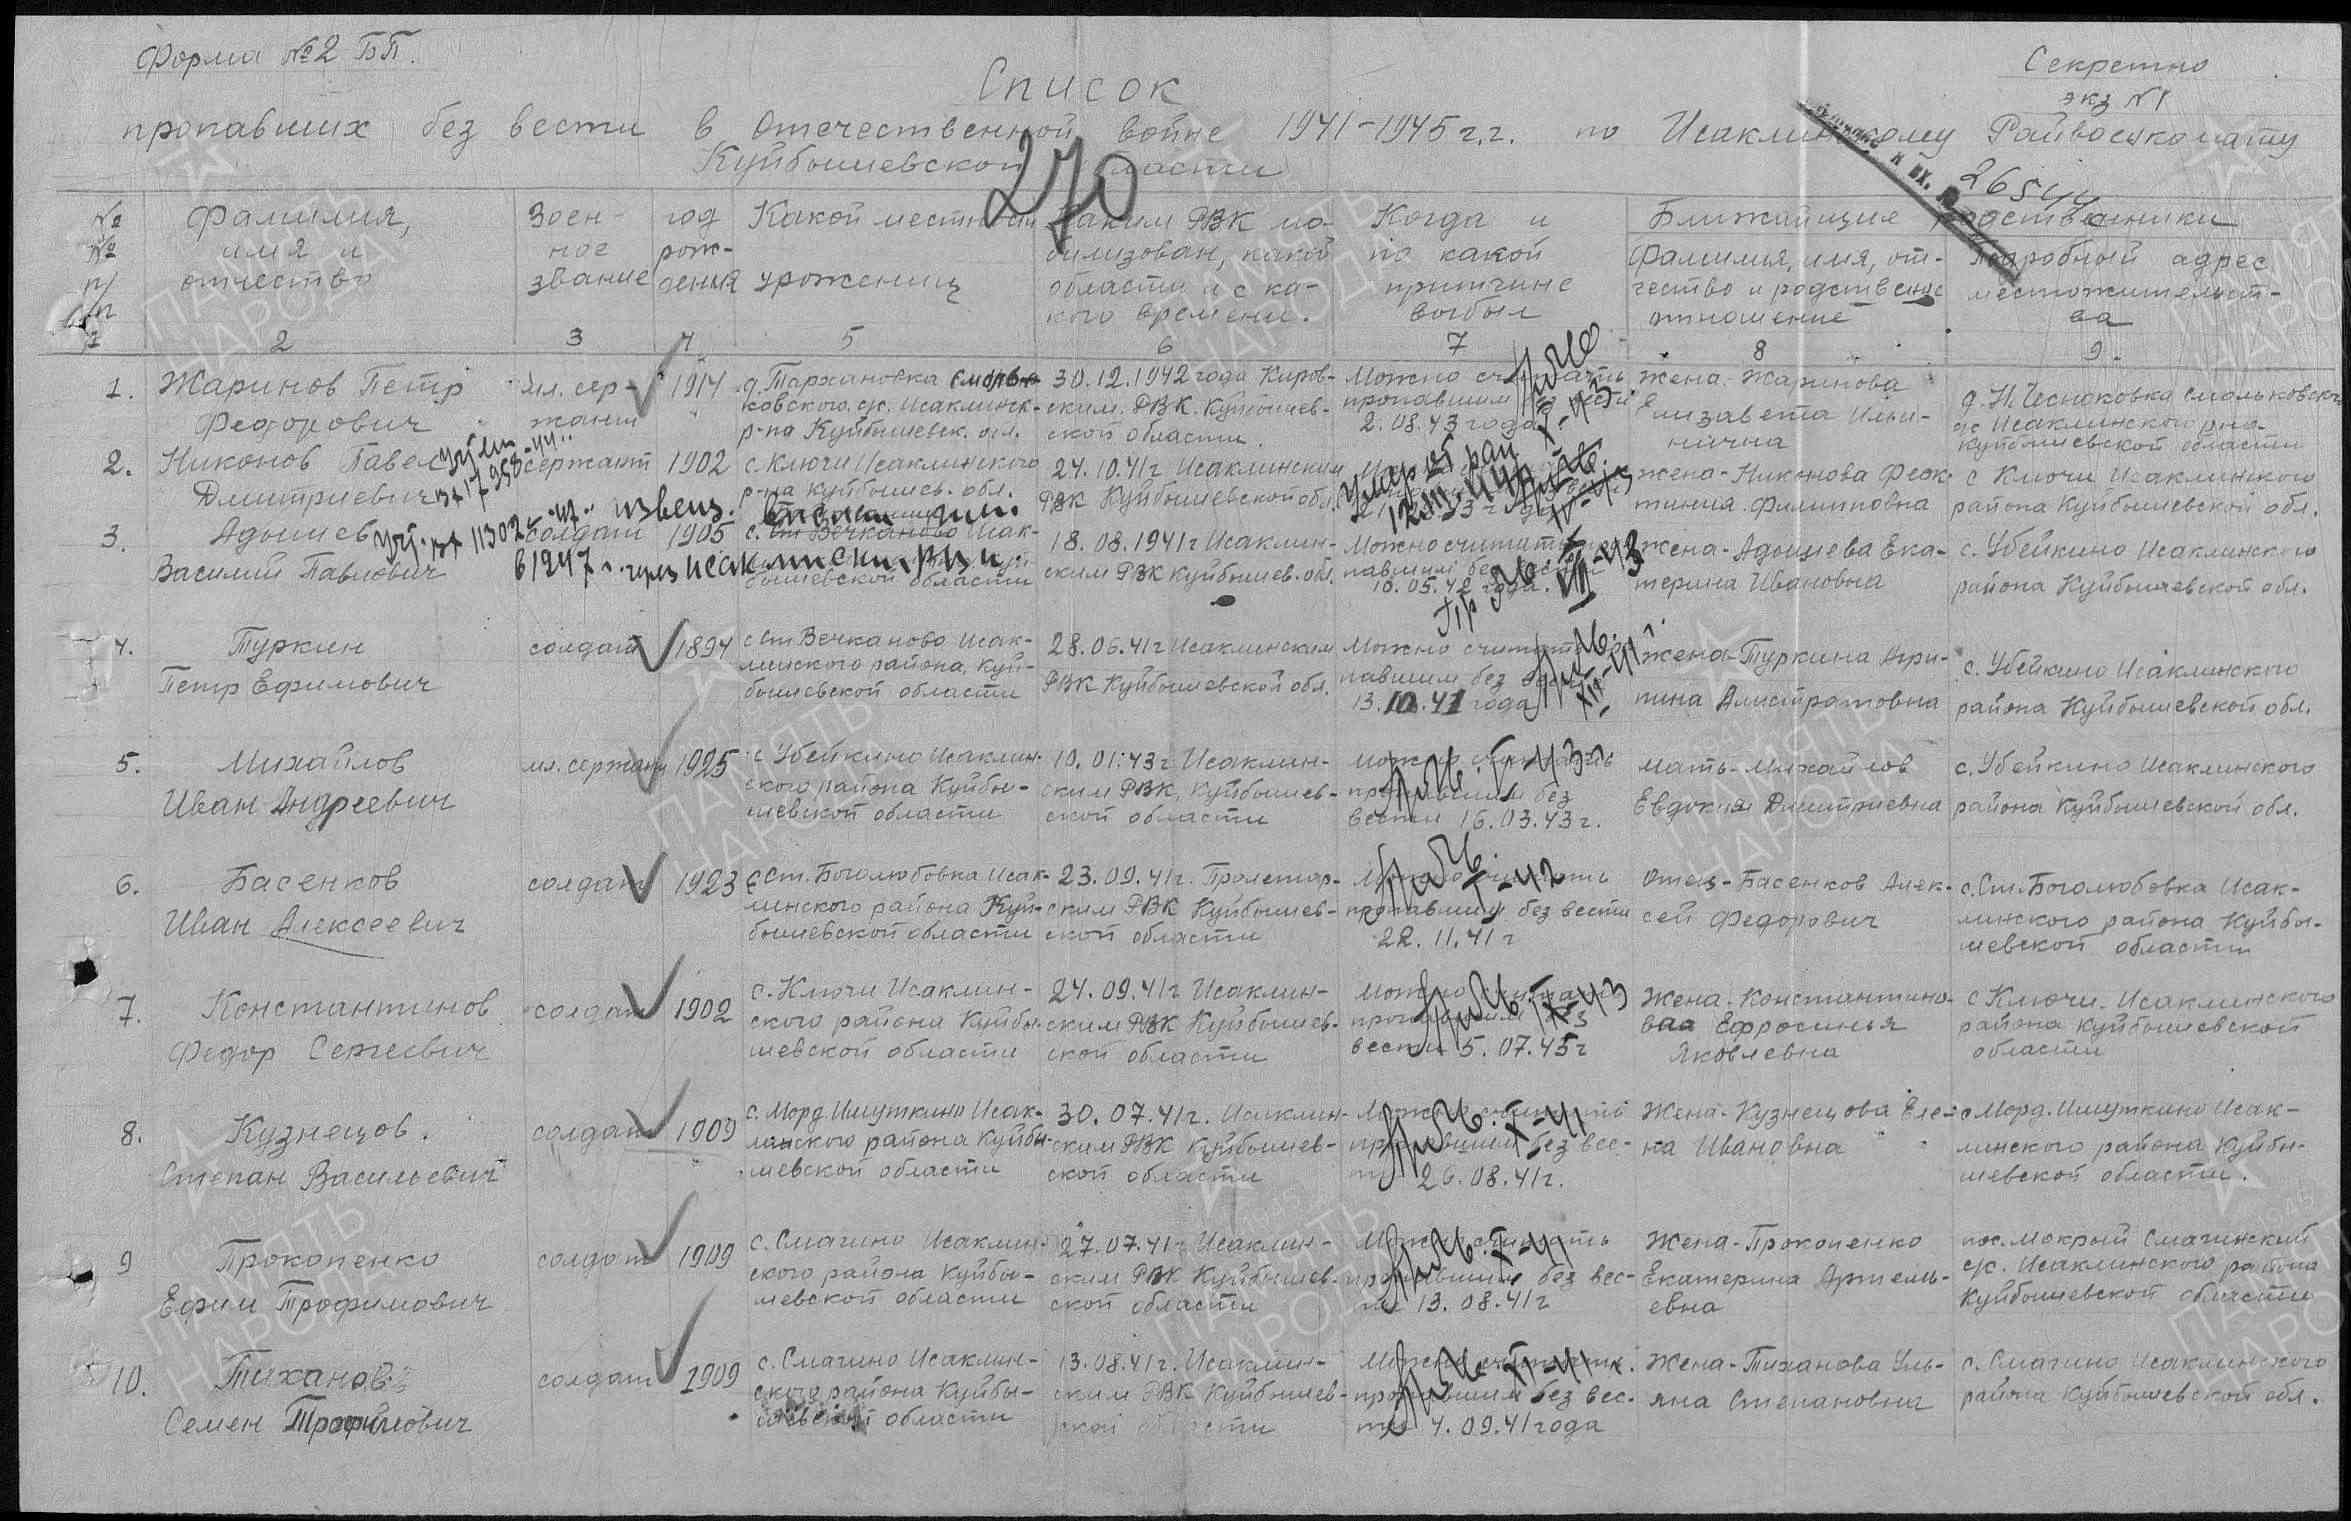 Форма №2 БП.
Секретно
экз №1
Список
пропавших без вести в Отечественной войне 1941-1945 г.г. по Исаклинскому Райвоенкомату
Куйбышевской области
270
к вх.
№№ п/п
Фамилия, имя и отчество
Воен-ное звание
год рож-дения
Какой местности урожениц
Каким РВК мо-билизован, какой области и с ка-кого времени.
Когда и по какой причине выбыл
Ближайщие родственники
Фамилия, имя, от-чество и родственное отношение
Подробный адрес местожительст-ва
1 2 3 4 5 6 7 8 9.
1. Жаринов Петр Федорович
мл. сер-жант
1914
д. Тархановка
ковского с/с. Исаклинск-
р-на Куйбышевск. обл.
30.12.1942 года Киров-
ским. РВК. Куйбышев-
ской области.
Можно считать
пропавшим вести
2.08.43 года
жена-Жаринова
Елизавета Ильи-
нична
д. Н. Чесноковка Смольковского
с/с Исаклинского р-на
Куйбышевской области
2. Никонов Павел
Дмитриевич
сержант
1902
с. Ключи Исаклинского
р-на Куйбышев. обл.
24.10.41г Исаклинским
РВК Куйбышевской обл.
умер
жена-Никонова Феок-
тиния Филипповна
с Ключи Исаклинского
района Куйбышевской обл.
3. Адошев
Василий Павлович
солдат
1905
с. Ст Вечканово Исак-
бышевской области
в 1947 г. через Исаклинский
извещ.
18.08.1941г Исаклин-
ским РВК Куйбышев. обл.
Можно считать про-
павшим без вести
10.05.42 года.
жена-Адошева Ека-
терина Ивановна
с. Убейкино Исаклинского
района Куйбышевской обл.
4. Туркин
Петр Ефимович
солдат
1894
с Ст Вечканово Исак-
линского района, Куй-
бышевской области
28.06.41г Исаклинским
РВК Куйбышевской обл.
Можно считать
павшим без
13.10.41 года
жена-Туркина Агри-
пина Алистратовна
с. Убейкино Исаклинского
района Куйбышевской обл.
5. Михайлов
Иван Андреевич
мл. сержант
1925
с Убейкино Исаклин-
ского района Куйбы-
шевской области
10.01.43г Исаклин-
ским РВК, Куйбышев-
ской области
Можно считать
пропавшим без
вести 16.03.43г.
мать-Михайлов
Евдокия Дмитриевна
с. Убейкино Исаклинского
района Куйбышевской обл.
6. Басенков
Иван Алексеевич
солдат
1923
с Ст. Боголюбовка Исак-
линского района Куй-
бышевской области
23.09.41г. Пролетар-
ским РВК Куйбышев-
ской области
Можно считать
пропавшим без вести
22.11.41г
отец-Басенков Алек-
сей Федорович
с. Ст. Боголюбовка Исак-
линского района Куйбы-
шевской области
7. Константинов
Федор Сергеевич
солдат
1902
с. Ключи Исаклин-
ского района Куйбы-
шевской области
24.09.41г Исаклин-
ским РВК Куйбышев-
ской области
Можно считать
пропавшим без
вести 5.07.43г
Жена-Константино-
ваа Ефросинья
Яковлевна
с Ключи Исаклинского
района Куйбышевской
области
8. Кузнецов.
Степан Васильевич
солдат
1909
с. Морд. Ишуткино Исак-
линского района Куйбы-
шевской области
30.07.41г. Исаклин-
ским РВК Куйбышев-
ской области
Можно считать
пропавшим без вес-
ти 26.08.41г.
Жена-Кузнецова Еле-
на Ивановна
с Морд. Ишуткино Исак-
линского района Куйбы-
шевской области.
9 Прокопенко
Ефим Трофимович
солдат
1909
с. Смагино Исаклин-
ского района Куйбы-
шевской области
27.07.41г Исаклин-
ским РВК Куйбышев-
ской области
Можно считать
пропавшим без вес-
ти 13.08.41г
Жена-Прокопенко
Екатерина Артемь-
евна
пос. Мокрый Смагинский
с/с. Исаклинского района
Куйбышевской области
10. Тиханов
Семен Трофимович
солдат
1909
с. Смагино Исаклин-
ского района Куйбы-
шевской области
13.08.41г. Исаклин-
ским РВК Куйбышев-
ской области
Можно считать
пропавшим без вес-
ти 4.09.41 года
Жена-Тиханова Уль-
яна Степановна
с. Смагино Исаклинского
района Куйбышевской обл.
ПАМЯТЬ НАРОДА